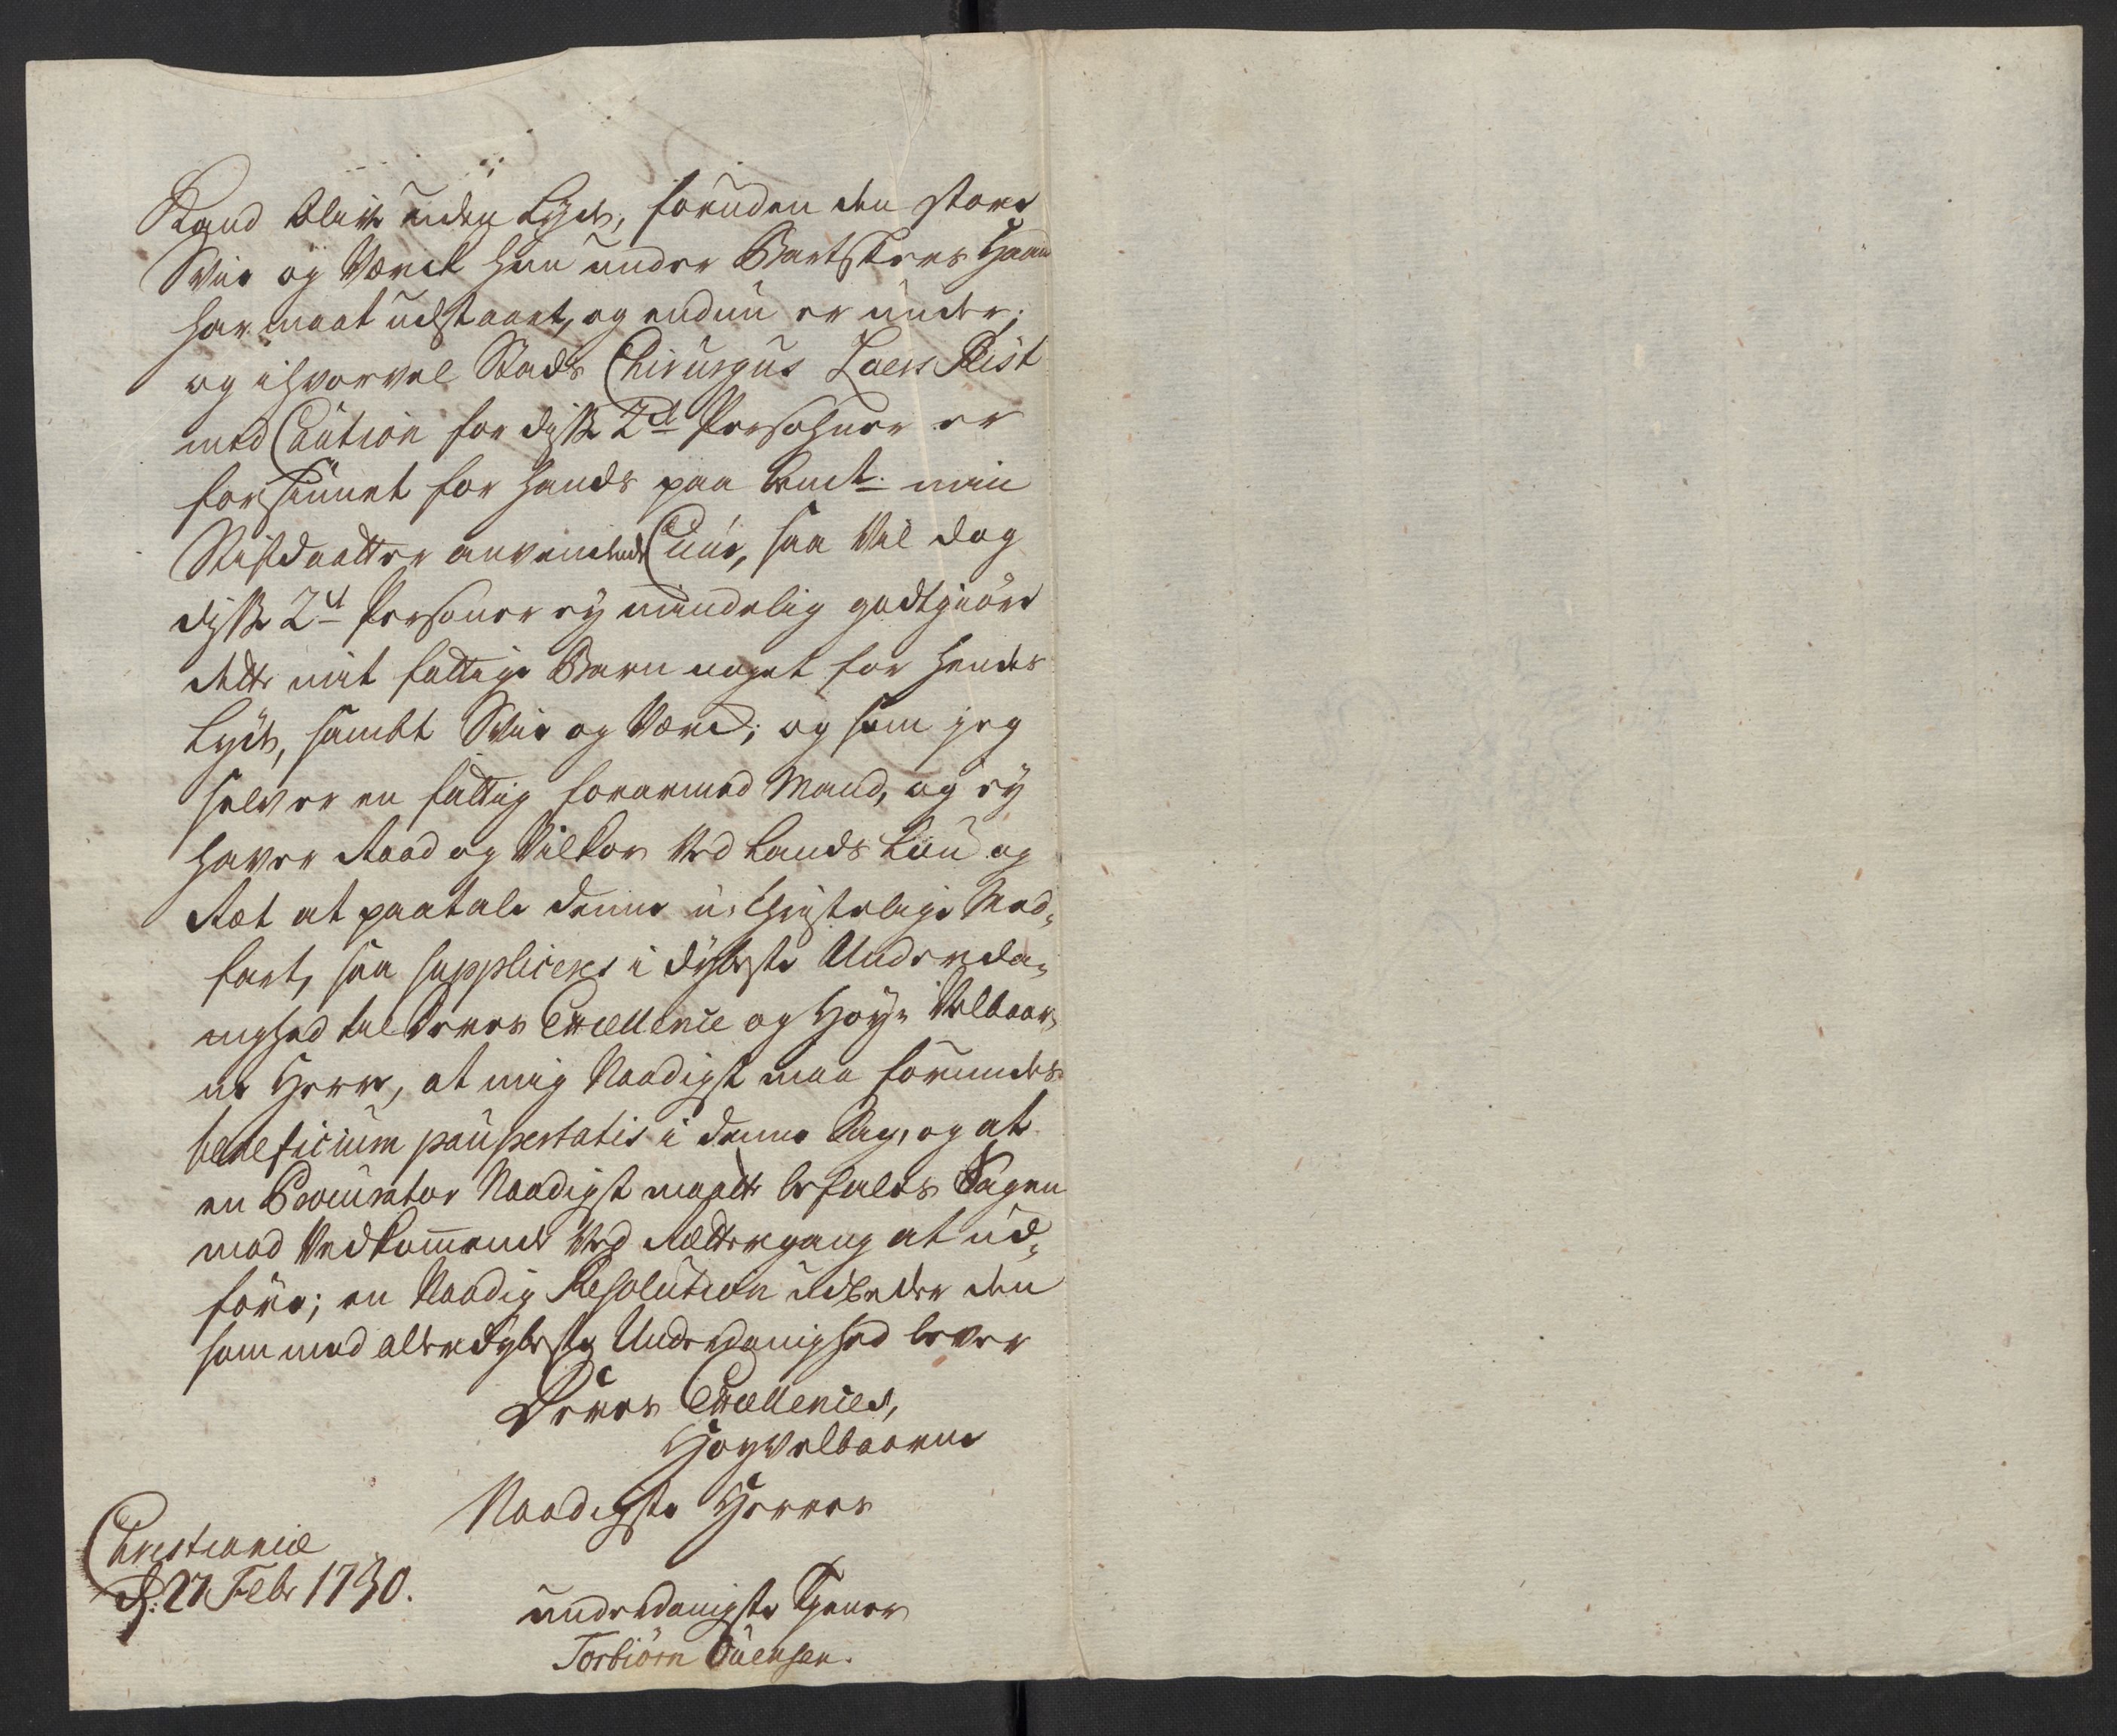 Stand blive uden Lyde, foruden den store
Svie og Værck hun under Bartskers Haand
har maat udstaaet, og endnu er under;
og ihvorvel Stads Chirurgus Laers Pist
med Caution for disse 2de Persohner er
forsiunet for hands paa bemte min
Stifdaatter anvendende Cuur, saa vil dog
disse 2de Personer ey mindelig godtgiøre
dette mit fattige Barn noget for hendes
Lyde, sambt Svie og Værck; og som jeg
selv er en fattig forarmed Mand, og ey
haver Raad og Vilkor ved Lands Lou og
Ræt at paatale denne u-Christelige Med-
fart, saa suppliceres i dybeste Underda-
nighed til Deres Excellence og Høy-Velbaar-
ne Herre, at mig Naadigst maa forundes
beneficium paupertatis i denne Sag, og at
en Procurator Naadigst maatte befales Sagen
mod Vedkommende ved Rettergang at ud-
føre; en Naadig Resolution udbeder den
som med allerdybeste Underdanighed lever
Deres Excellences,
Høyvelbaarne
Naadigste Herres
Christianiæ
d: 27 Febr 1730.
underdanigste Tjener
Torbiörn Suensen.